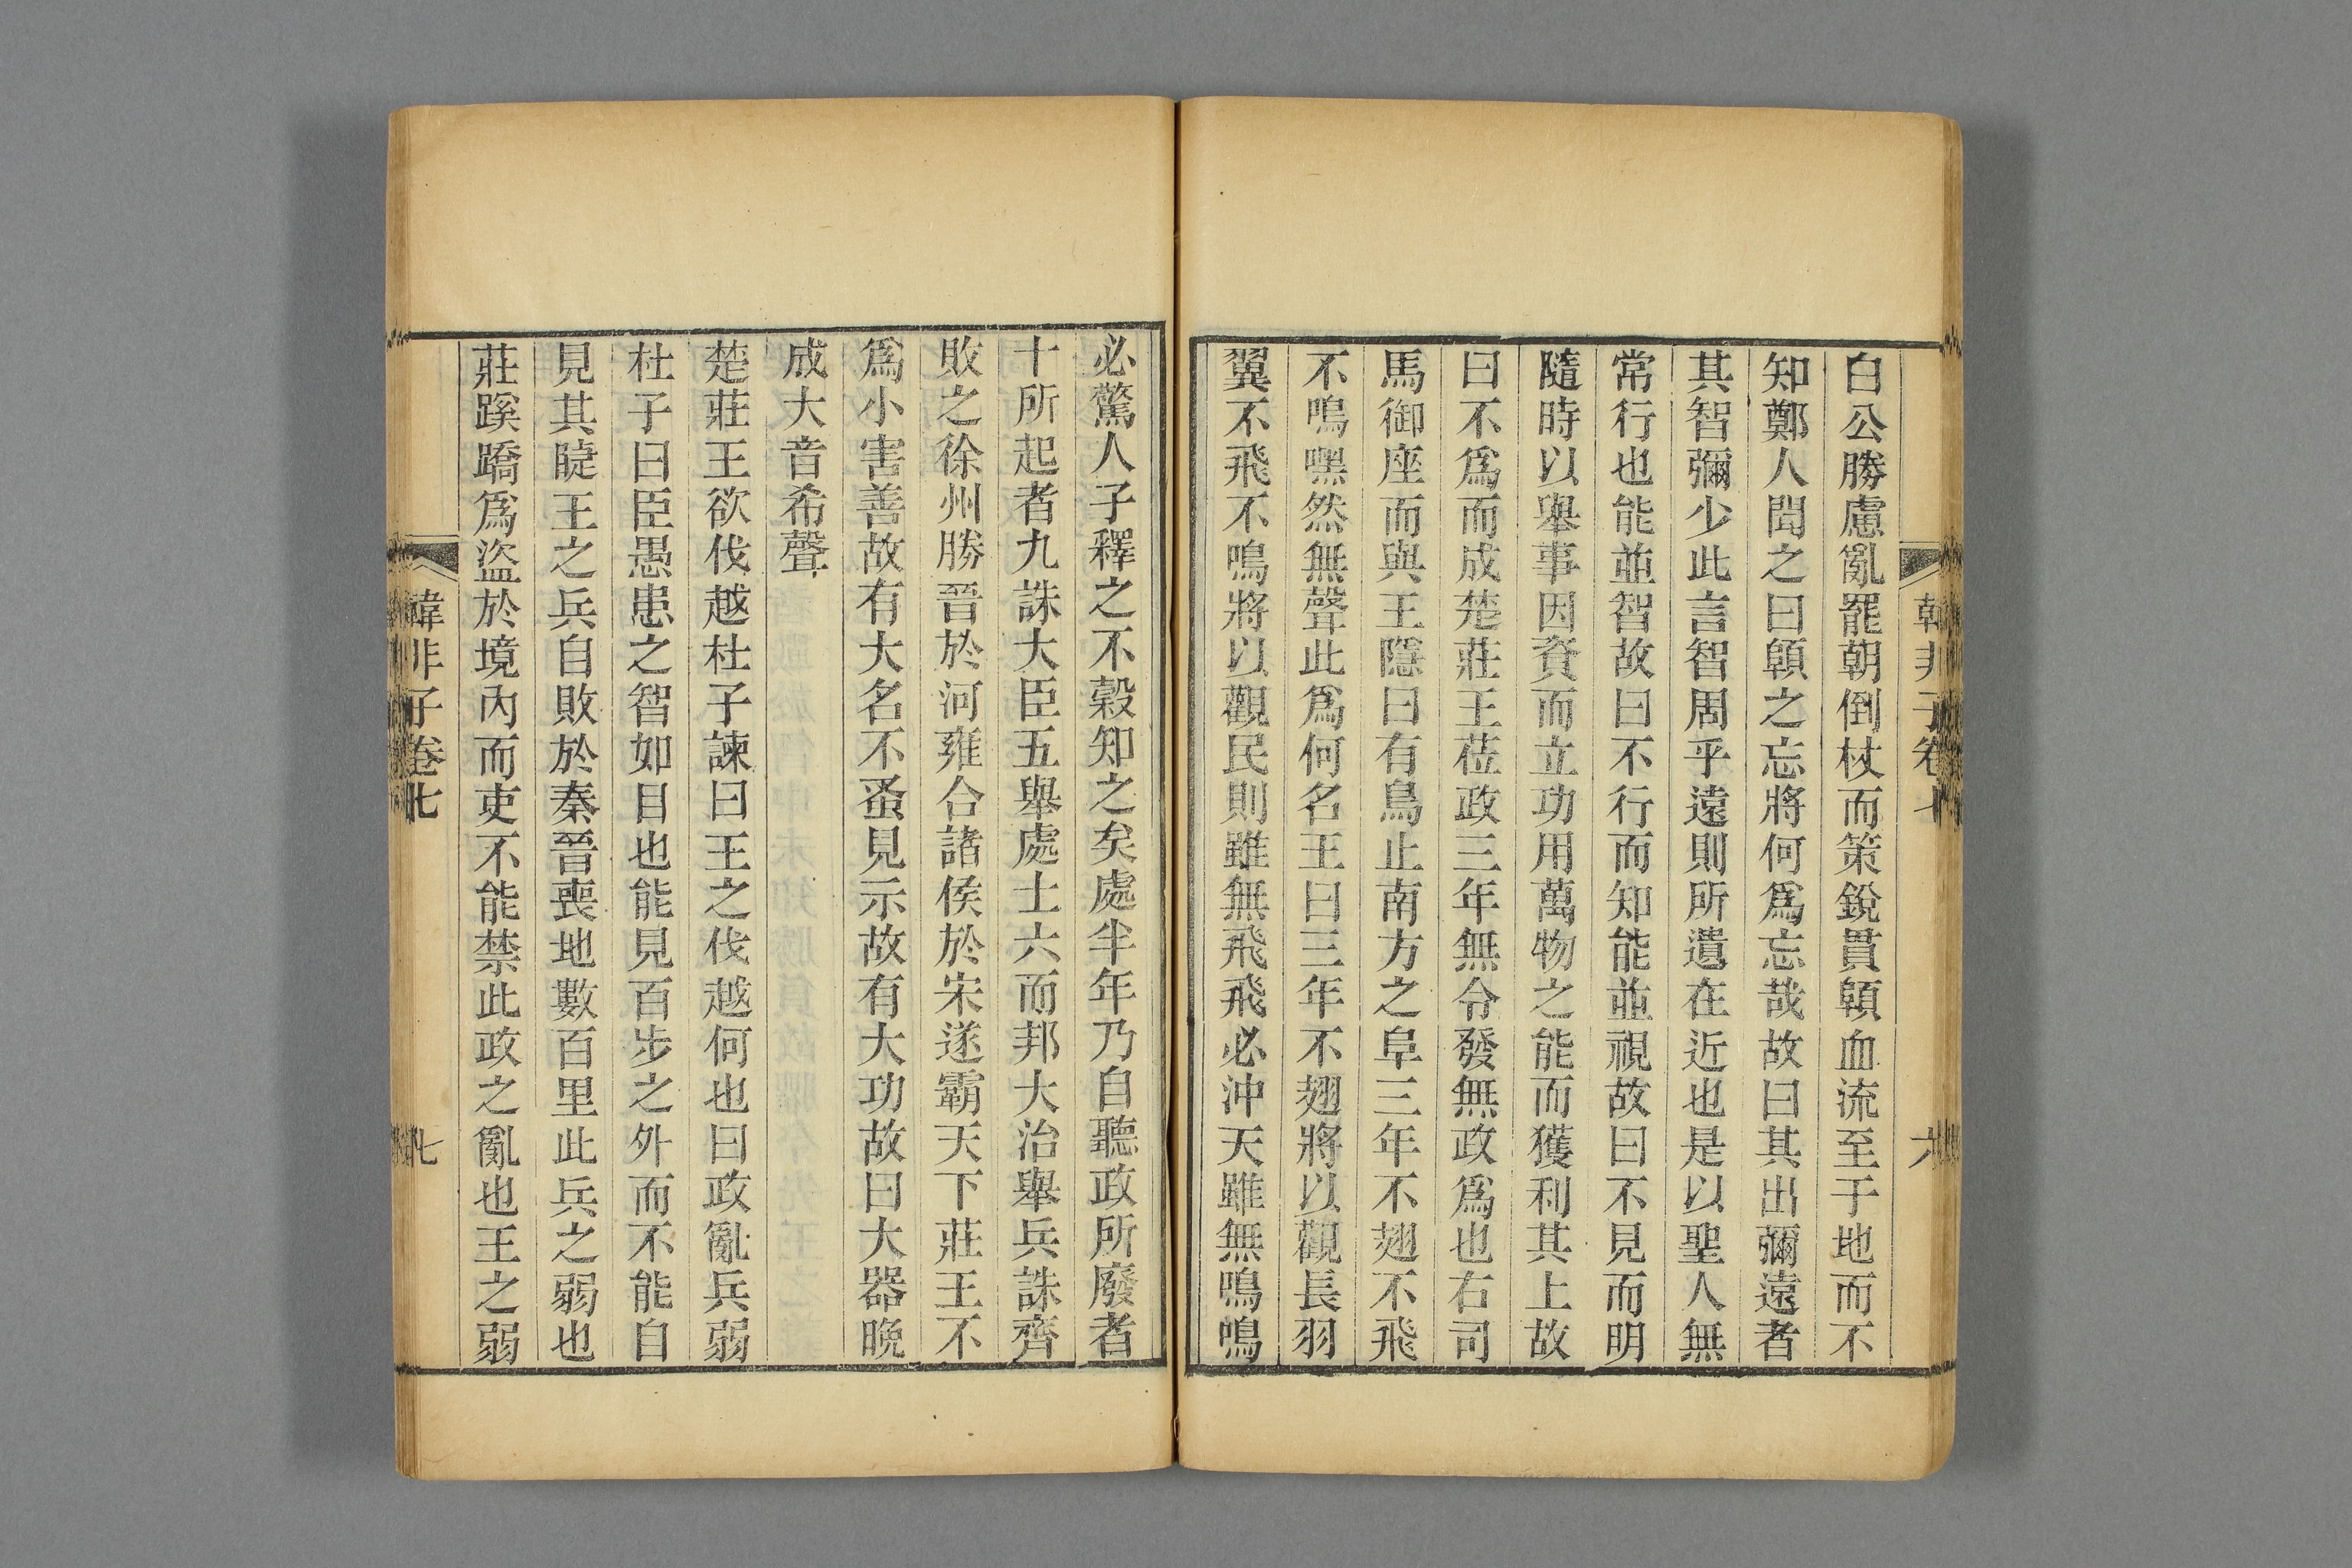 韓非子卷七
六
白公勝慮亂罷朝倒杖而策銳貫顊血流至于地而不
知鄭人聞之曰顊之忘將何爲忘哉故曰其出彌遠者
其智彌少此言智周乎遠則所遺在近也是以聖人無
常行也能並智故曰不行而知能並視故曰不見而明
隨時以舉事因資而立功用萬物之能而獲利其上故
曰不爲而成楚莊王莅政三年無令發無政爲也右司
馬御座而與王隱曰有鳥止南方之阜三年不翅不飛
不鳴嘿然無聲此爲何名王曰三年不翅將以觀長羽
翼不飛不鳴將以觀民則雖無飛飛必沖天雖無鳴鳴
必驚人子釋之不糓知之矣處半年乃自聽政所廢者
十所起者九誅大臣五舉處士六而邦大治舉兵誅齊
敗之徐州勝晉於河雍合諸侯於宋遂霸天下莊王不
爲小害善故有大名不蚤見示故有大功故曰大器晚
成大音希聲
楚莊王欲伐越杜子諫曰王之伐越何也曰政亂兵弱
杜子曰臣愚患之智如目也能見百步之外而不能自
見其睫王之兵自敗於秦晉喪地數百里此兵之弱也
莊蹊蹻爲盜於境內而吏不能禁此政之亂也王之弱
韓非子卷七
七